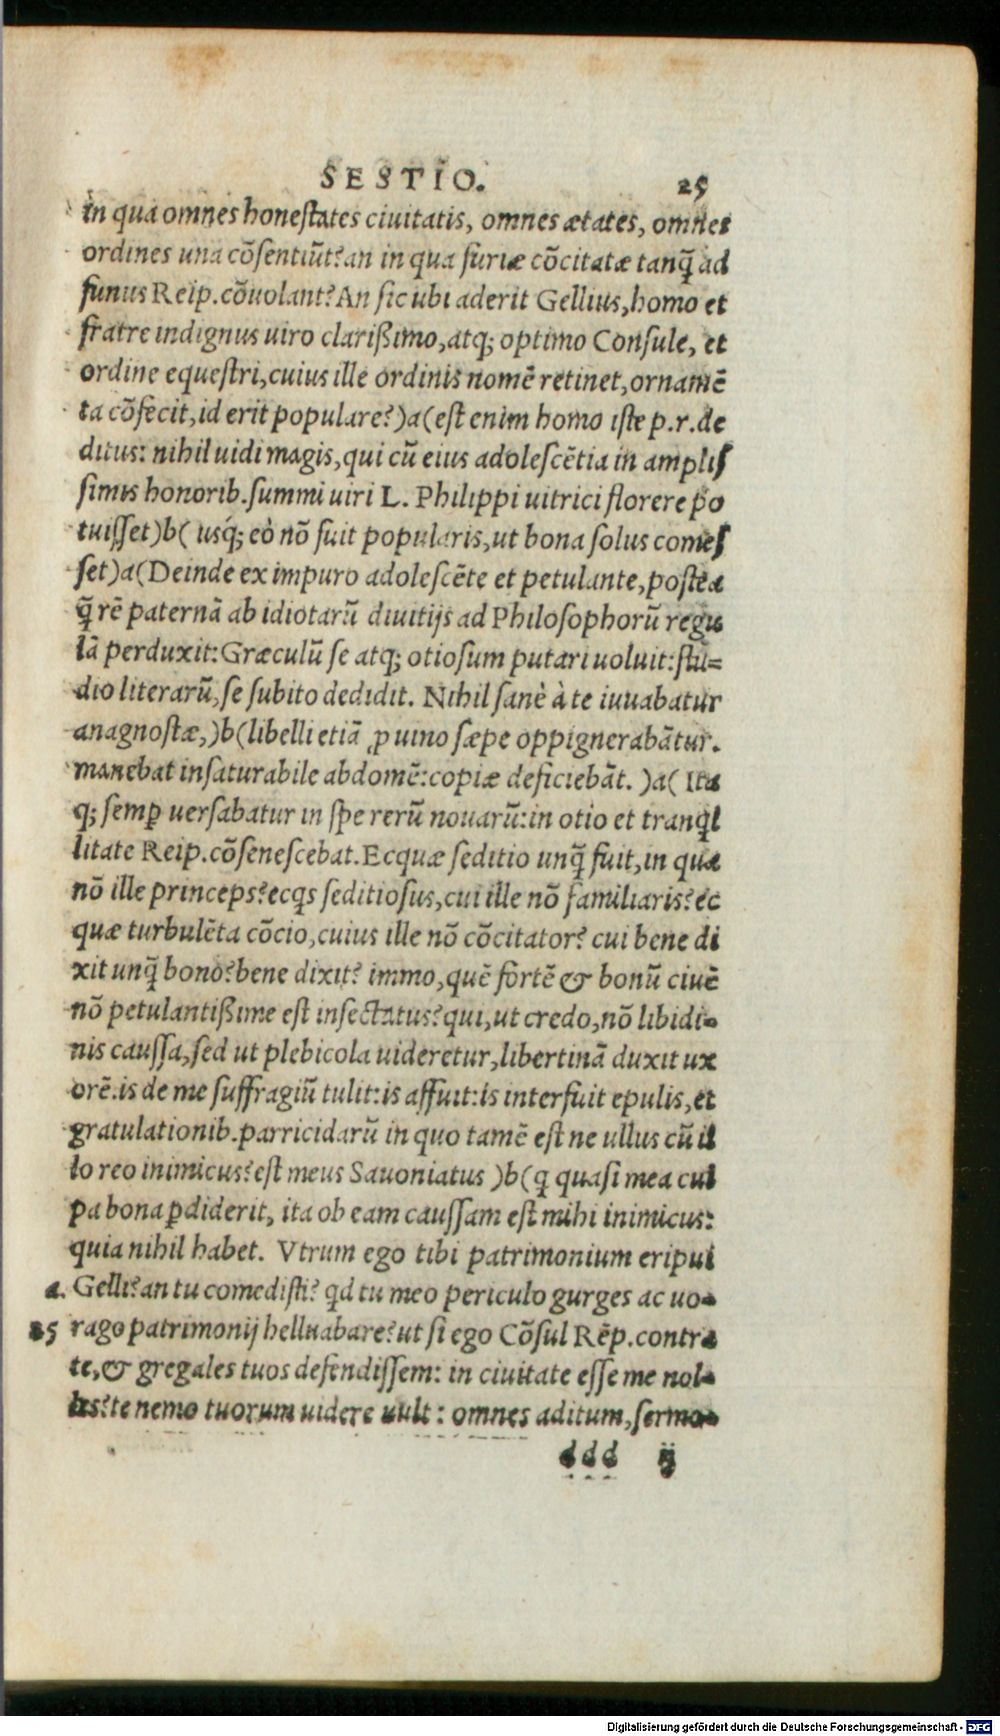 SESTIO. 25
in qua omnes honeſtates ciuitatis, omnes ætates, omnes
ordines una cõſentiũt? an in qua furiæ cõcitatæ tanq̃ ad
funus Reip. cõuolant? An ſic ubi aderit Gellius, homo et
fratre indignus uiro clarißimo, atq; optimo Conſule, et
ordine equeſtri, cuius ille ordinis nomẽ retinet, ornamẽ
ta cõfecit, id erit populare?)a(eſt enim homo iſte p.r. de
ditus: nihil uidi magis, qui cũ eius adoleſcẽtia in ampliſ
ſimis honorib. ſummi uiri L. Philippi uitrici florere po
tuiſſet)b( uſq́; eò nõ fuit popularis, ut bona ſolus comeſ
ſet)a(Deinde ex impuro adoleſcẽte et petulante, poſteá
q̃ rẽ paternã ab idiotarũ diuitijs ad Philoſophorũ regu
lã perduxit: Græculũ ſe atq; otioſum putari uoluit: ſtu=
dio literarũ, ſe ſubito dedidit. Nihil ſanè à te iuuabatur
anagnoſtæ,)b(libelli etiã ꝓ uino ſæpe oppignerabãtur.
manebat inſaturabile abdomẽ: copiæ deficiebãt. )a( Ita
q; ſemꝑ uerſabatur in ſpe rerũ nouarũ: in otio et tranq̃l
litate Reip. cõſeneſcebat. Ecquæ ſeditio unq̃ fuit, in qua
nõ ille princeps? ecq̃s ſeditioſus, cui ille nõ familiaris? ec
quæ turbulẽta cõcio, cuius ille nõ cõcitator? cui bene di
xit unq̃ bono? bene dixit? immo, quẽ fortẽ & bonũ ciuẽ
nõ petulantißime eſt inſectatus? qui, ut credo, nõ libidi-
nis cauſſa, ſed ut plebicola uideretur, libertinã duxit ux
orẽ. is de me ſuffragiũ tulit: is affuit: is interfuit epulis, et
gratulationib. parricidarũ in quo tamẽ eſt ne ullus cũ il
lo reo inimicus? eſt meus Sauoniatus )b(q̃ quaſi mea cul
pa bona ꝑdiderit, ita ob eam cauſſam eſt mihi inimicus:
quia nihil habet. Vtrum ego tibi patrimonium eripui
a. Gelli? an tu comediſti? qd tu meo periculo gurges ac uo-
25 rago patrimonij helluabare? ut ſi ego Cõſul Rẽp. contra
te, & gregales tuos defendiſſem: in ciuitate eſſe me nol-
les? te nemo tuorum uidere uult : omnes aditum, ſermo-
ddd ij
Digitalisierung gefördert durch die Deutsche Forschungsgemeinschaft - DFG